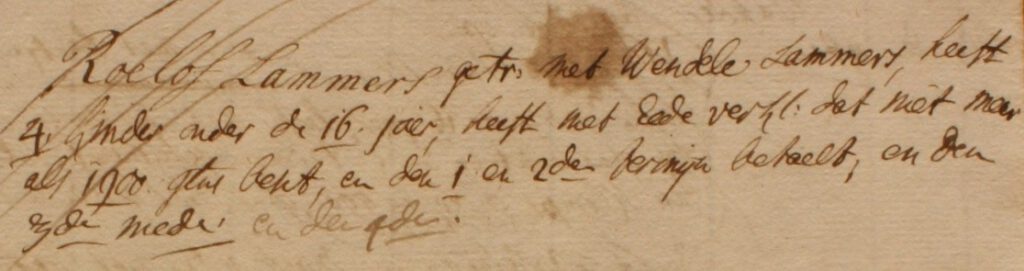 Roelof Lammers getr. met Wendele Lammers, heeft
4 kinder onder de 16. jaer, heeft met Eede verkl: dat niet meer
als 1700. glns besit, en den 1 en 2den termijn betaelt, en den
3den mede. en den 4den.